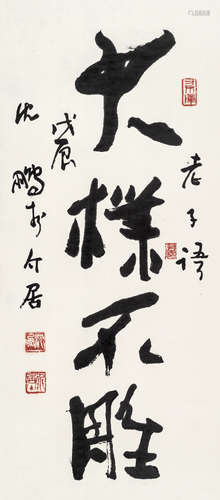 大樸不雕
老子語
戊辰
沈鵬於介居